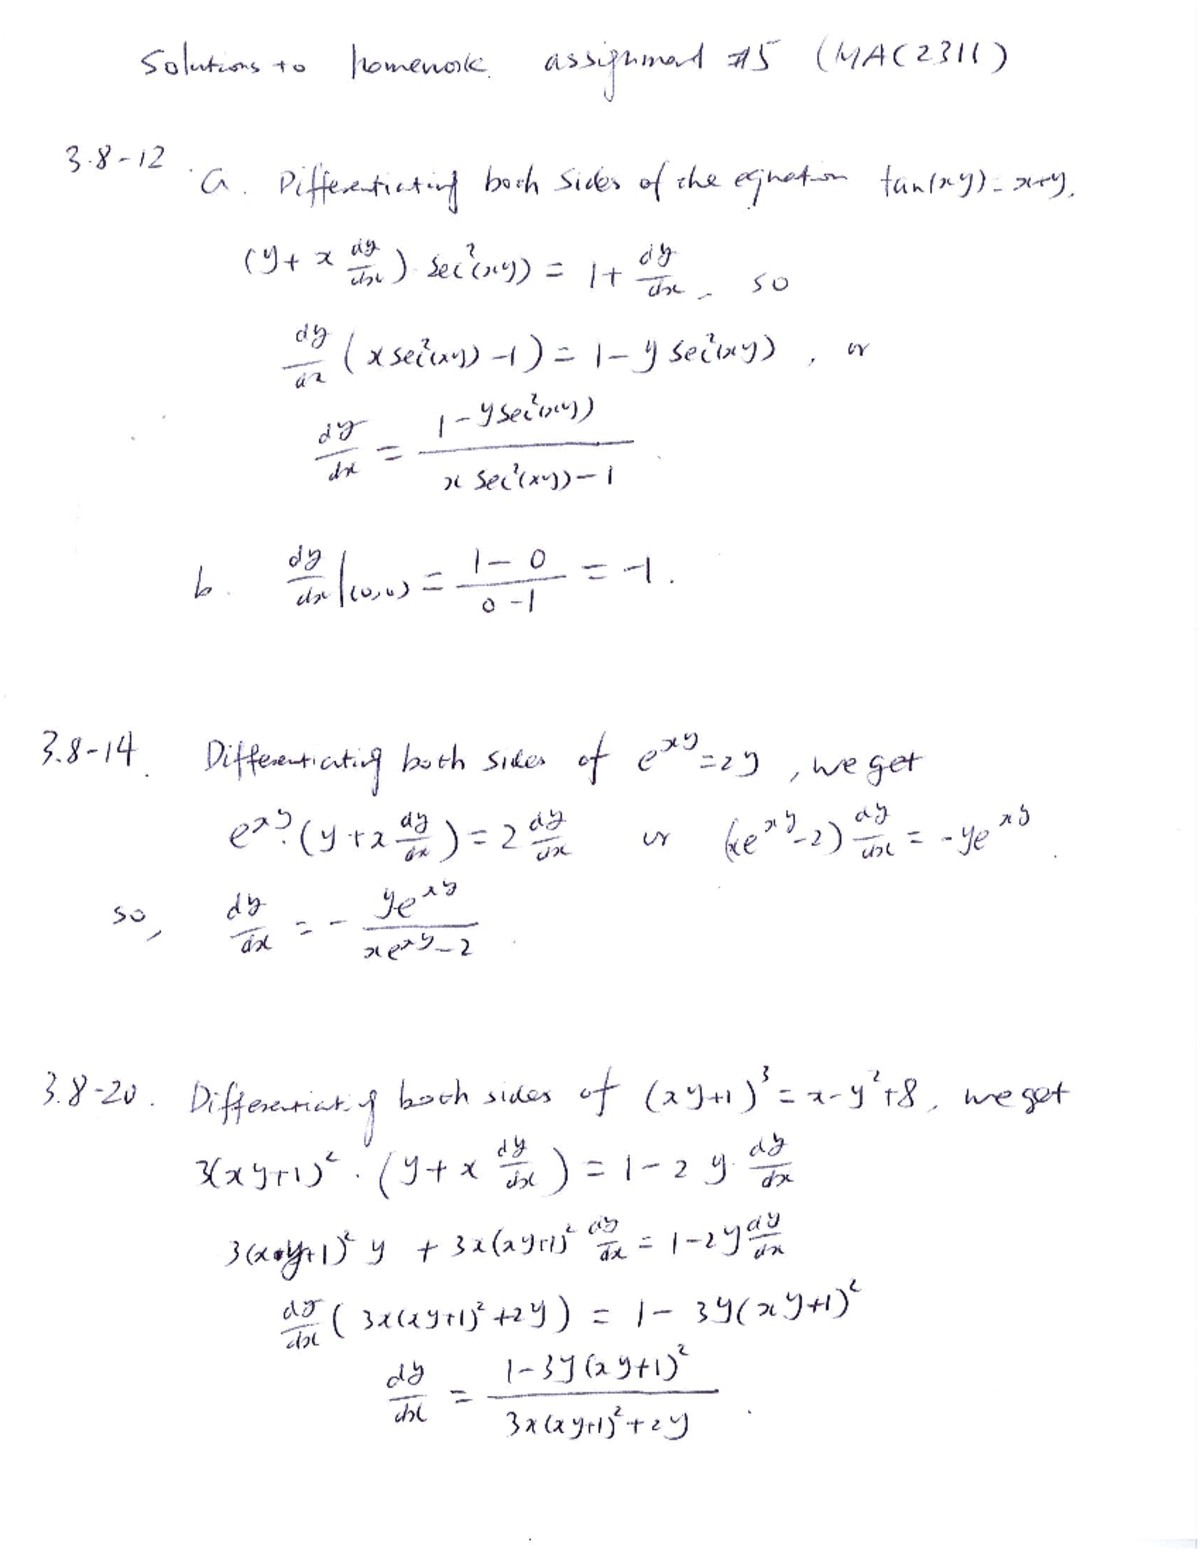 Solutions to homework assignment #5 (MAC2311)
3.8-12 a. Differentiating both sides of the equation tan(xy) = x+y.
(y + x dy/dx) · sec²(xy) = 1 + dy/dx, so
dy/dx (x sec²(xy) - 1) = 1 - y sec²(xy), or
dy/dx = (1 - y sec²(xy)) / (x sec²(xy) - 1).
b. dy/dx |(0,0) = (1 - 0) / (0 - 1) = -1.
3.8-14. Differentiating both sides of e^xy = 2y, we get
e^xy · (y + x dy/dx) = 2 dy/dx or (xe^xy - 2) dy/dx = -ye^xy.
so, dy/dx = - ye^xy / (xe^xy - 2).
3.8-20. Differentiating both sides of (xy+1)³ = x - y² + 8, we get
3(xy+1)² · (y + x dy/dx) = 1 - 2y · dy/dx
3(xy+1)² y + 3x(xy+1)² dy/dx = 1 - 2y dy/dx
dy/dx (3x(xy+1)² + 2y) = 1 - 3y(xy+1)²
dy/dx = (1 - 3y(xy+1)²) / (3x(xy+1)² + 2y).